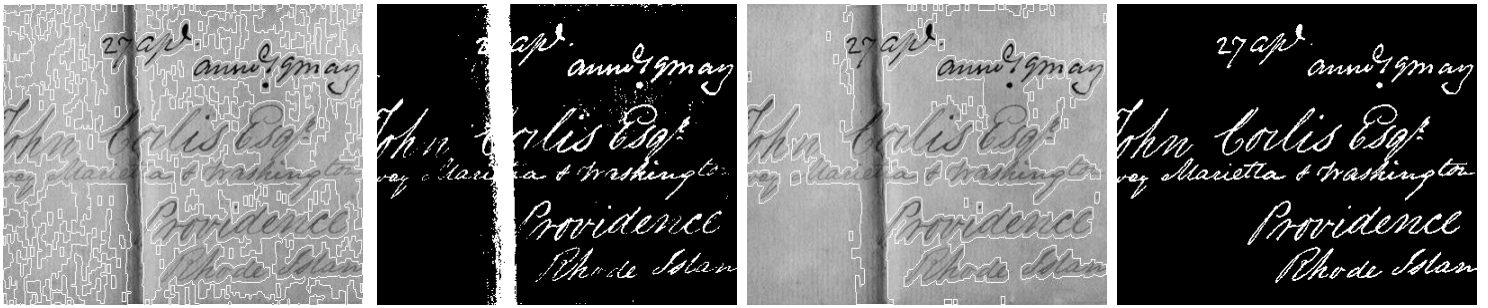 27 apl.
9 may
John Corlis Esqr.
Marietta & Washington
Providence
Rhode Islan
27 apl.
9 may
John Corlis Esqr.
Marietta & Washington
Providence
Rhode Islan
27 apl.
9 may
John Corlis Esqr.
Marietta & Washington
Providence
Rhode Islan
27 apl.
9 may
John Corlis Esqr.
Marietta & Washington
Providence
Rhode Islan